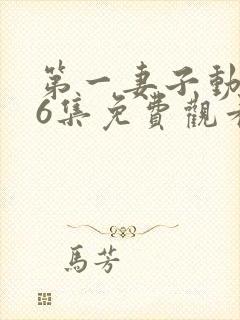 第一妻子動
6集免費觀看
馬芳